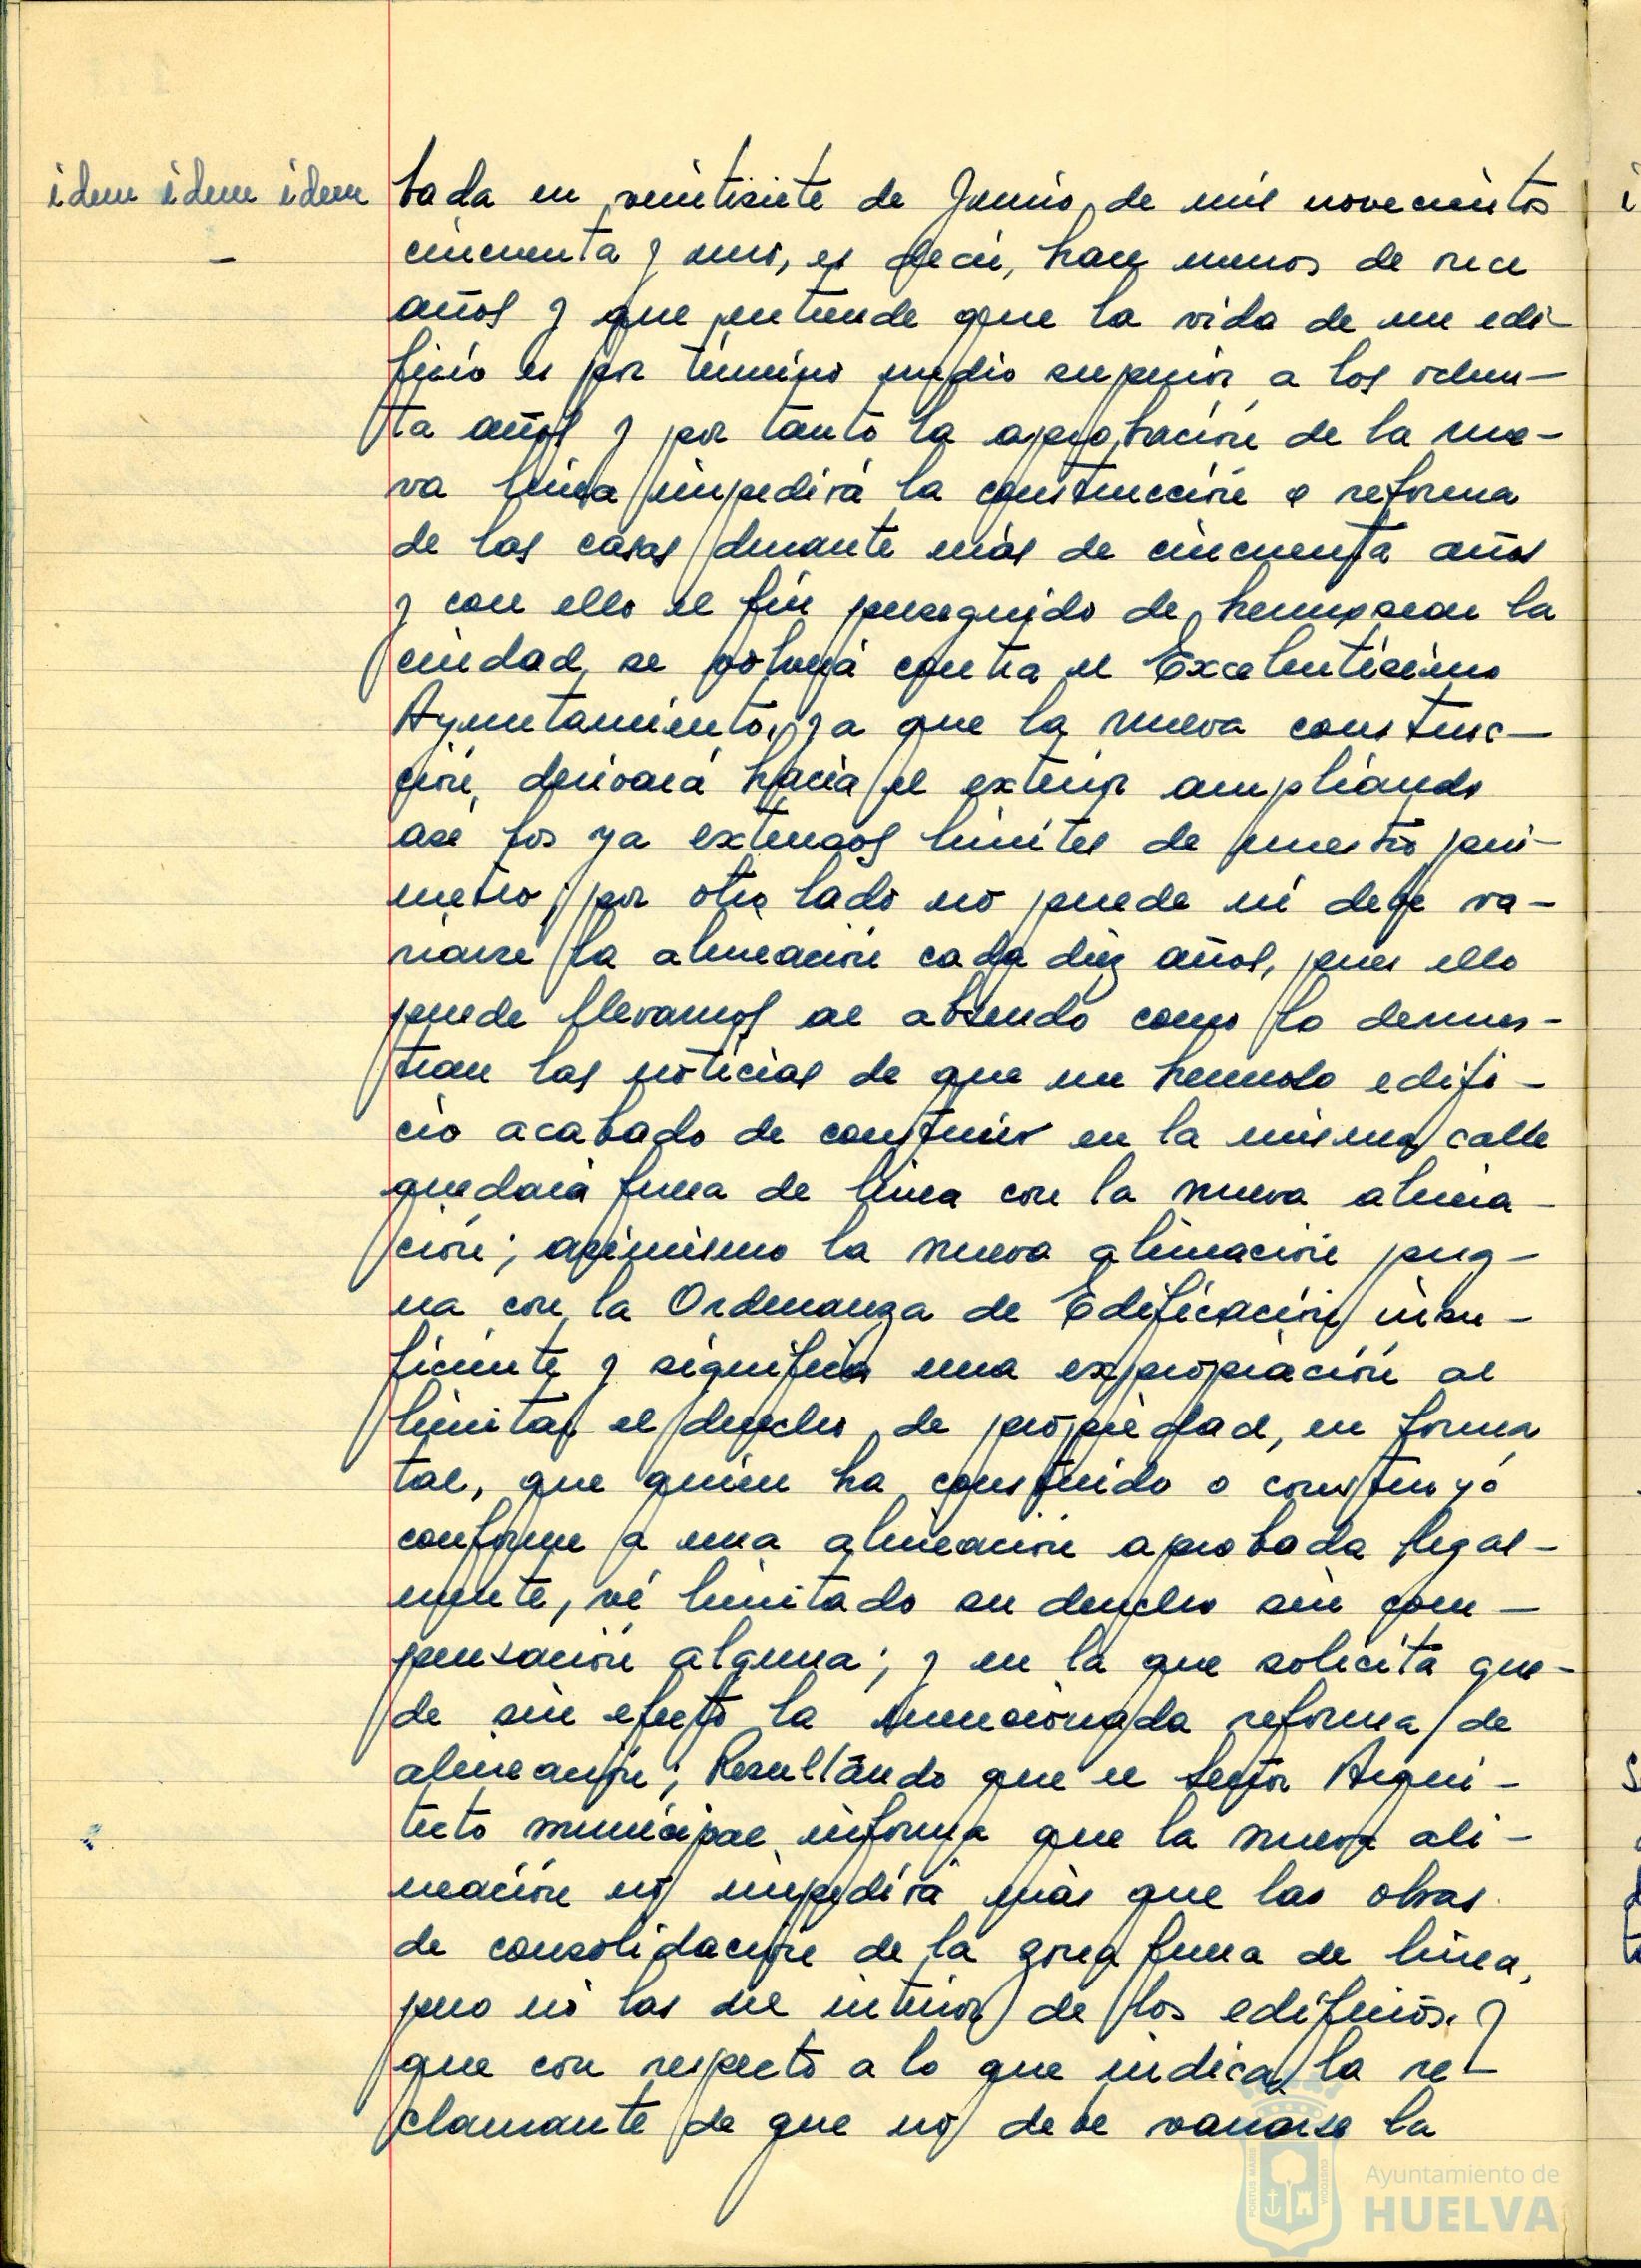 idem idem idem
—
bada en veintisiete de Junio de mil novecientos
cincuenta y uno, es decir, hace menos de once
años y que entiende que la vida de un edi-
ficio es por término medio superior a los ochen-
ta años y por tanto la aprobación de la nue-
va línea impedirá la construcción o reforma
de las casas durante más de cincuenta años
y con ello el fin perseguido de hermosear la
ciudad, se volverá contra el Excelentísimo
Ayuntamiento, ya que la nueva construc-
ción, derivará hacia el exterior ampliando
así los ya extensos límites de nuestro perí-
metro; por otro lado no puede ni debe va-
riarse la alineación cada diez años, pues ello
puede llevarnos al absurdo como lo demues-
tran las noticias de que un hermoso edifi-
cio acabado de construir en la misma calle
quedará fuera de línea con la nueva alinea-
ción; asimismo la nueva alineación pug-
na con la Ordenanza de Edificación insu-
ficiente y significa una expropiación al
limitar el derecho de propiedad, en forma
tal, que quien ha construido o construyó
conforme a una alineación aprobada legal-
mente, vé limitado su derecho sin com-
pensación alguna; y en la que solicita que-
de sin efecto la mencionada reforma de
alineación; Resultando que el Señor Arqui-
tecto municipal informa que la nueva ali-
neación no impedirá más que las obras
de consolidación de la zona fuera de línea,
pero no las del interior de los edificios. Y
que con respecto a lo que indica la re-
clamante de que no debe variarse la
PORTUS MARIS
CUSTODIA
Ayuntamiento de
HUELVA